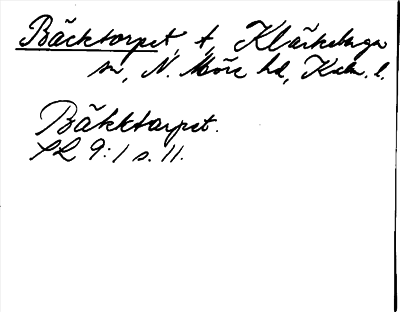 Bäcktorpet, t, Kläckeberga
sn, N. Möre hd, Kalm. l.
Bäkktorpet.
SL 9:1 s. 11.